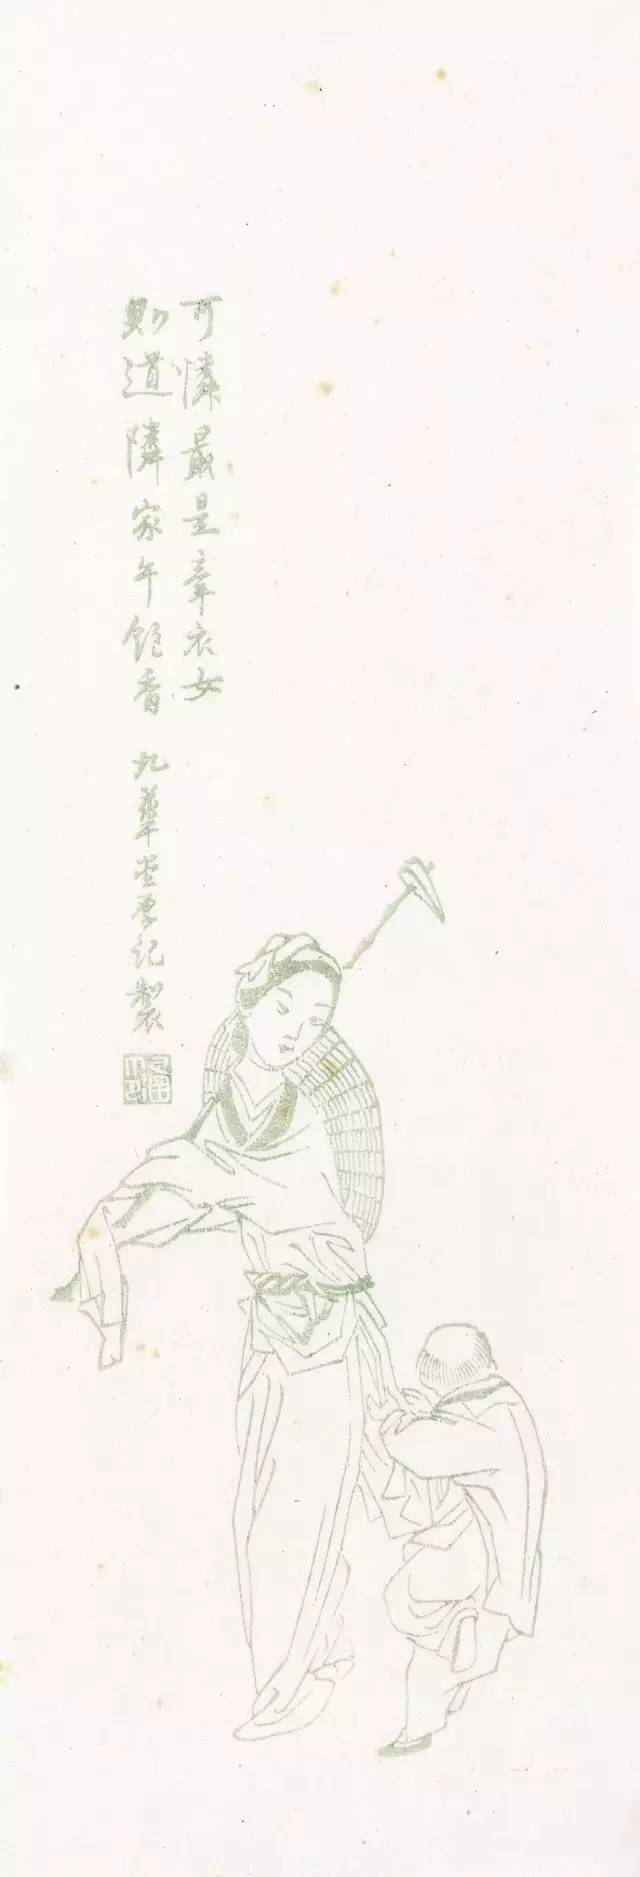 可憐最是牽衣女
則道隣家午飯香　九華堂厚記製